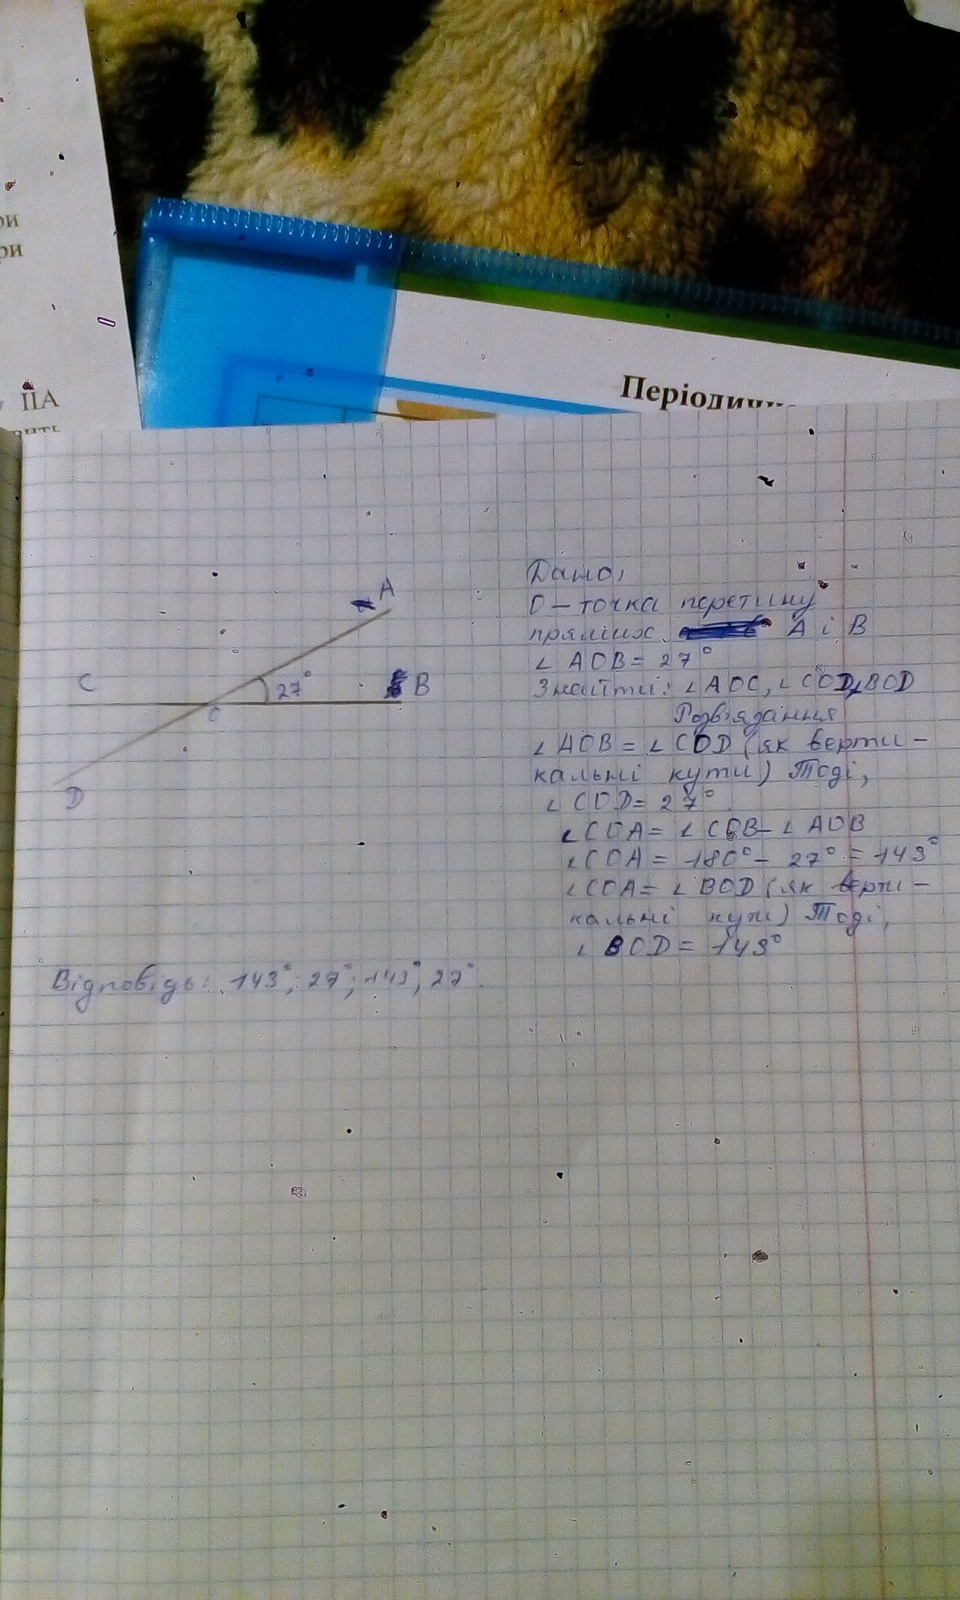 ри
ри
ІІА
Періодичн
A
C
27°
B
O
D
Дано,
O – точка перетину
прямих A і B
∠ AOB = 27°
Знайти: ∠AOC, ∠COD, BOD
Розв'язання
∠ AOB = ∠ COD (як верти –
кальні кути) Тоді,
∠ COD = 27°
∠COA = ∠ COB – ∠ AOB
∠COA = 180° – 27° = 143°
∠COA = ∠ BOD (як верти –
кальні кути) Тоді,
∠ BOD = 143°
Відповідь: 143°; 27°; 143°, 27°.